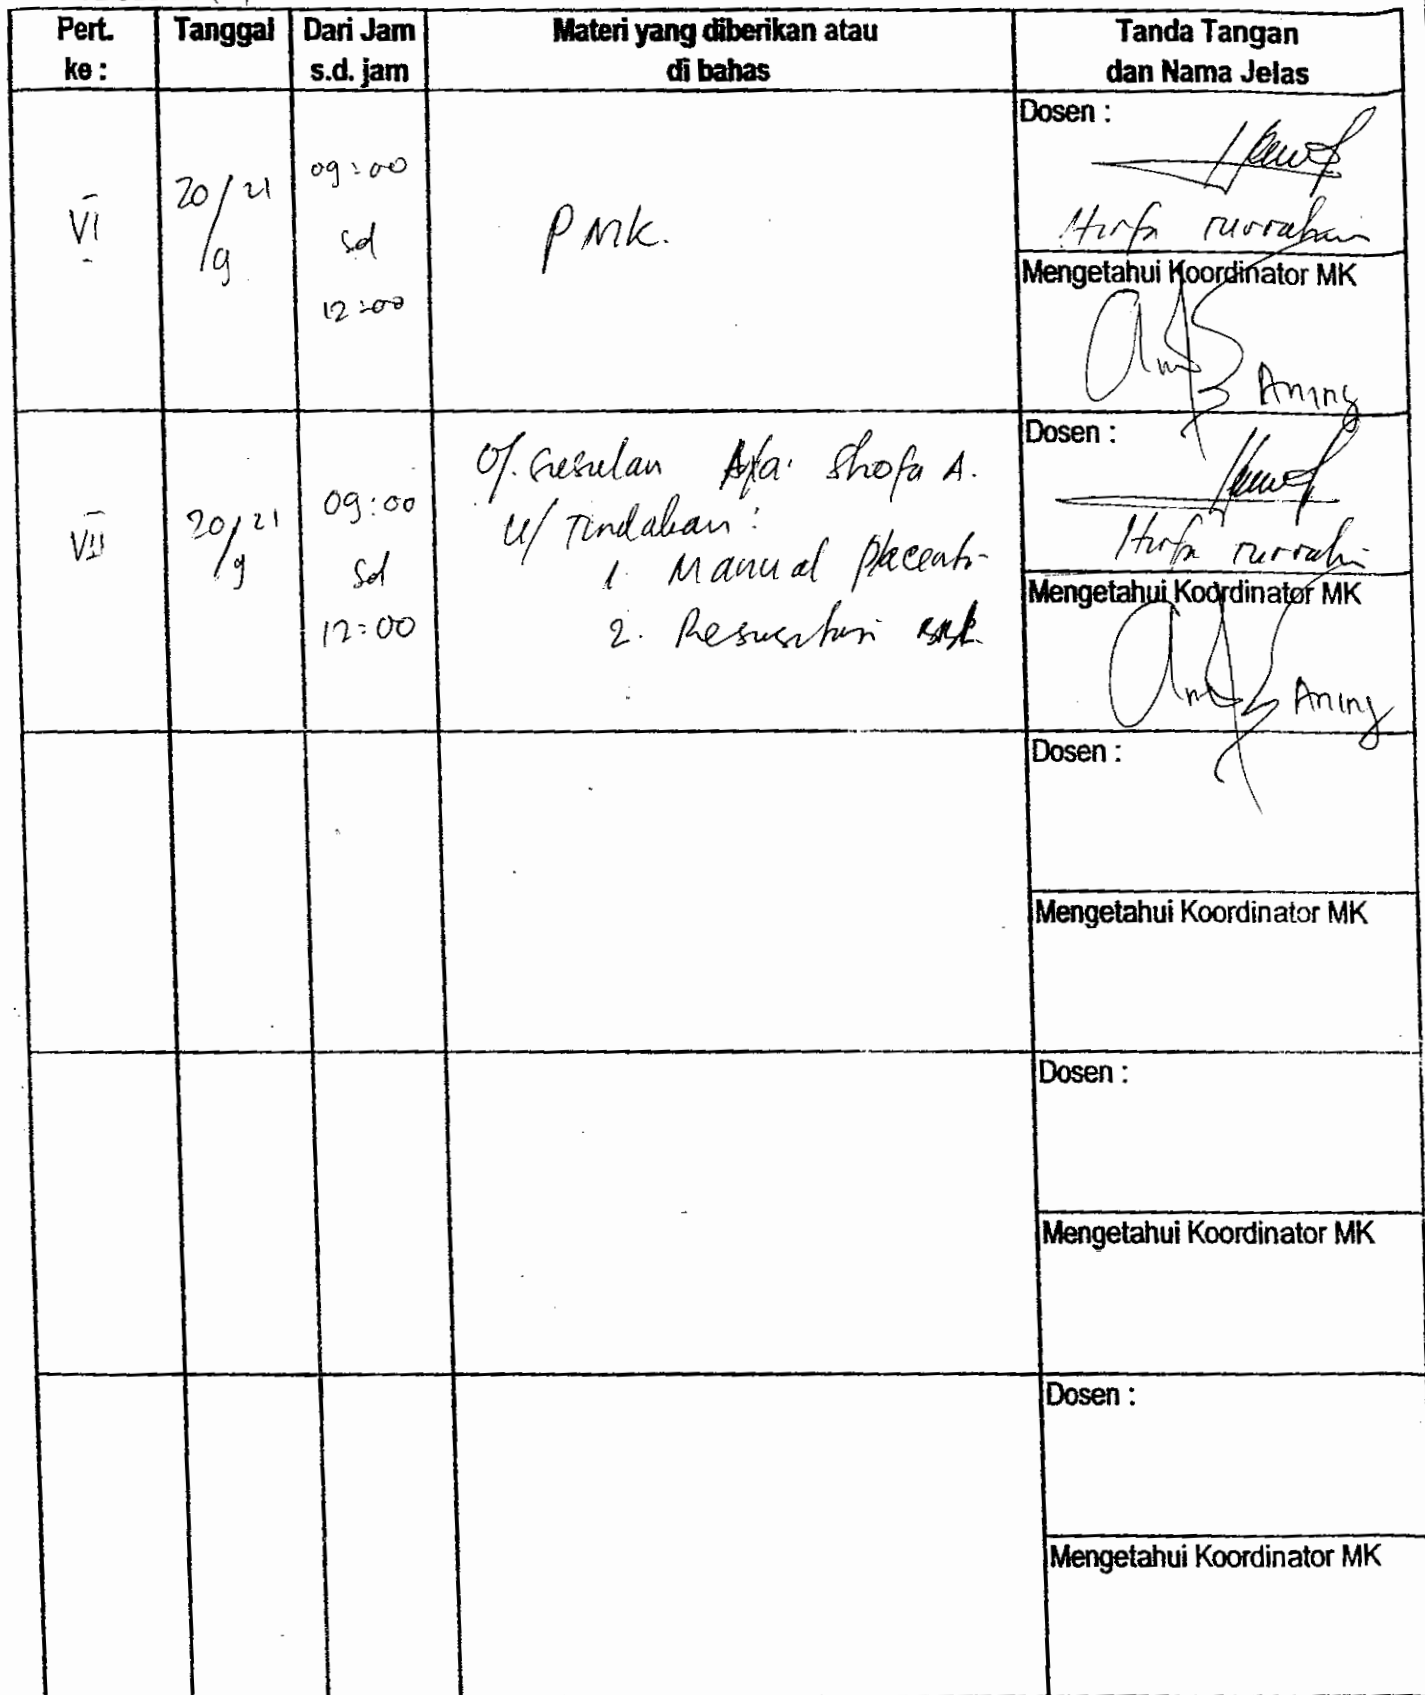 Pert. ke :
Tanggal
Dari Jam s.d. jam
Materi yang diberikan atau di bahas
Tanda Tangan dan Nama Jelas
VI
20/21
/9
09:00
sd
12:00
PMK.
Dosen :
Hirfa
Mengetahui Koordinator MK
Aning
VII
20/21
/9
09:00
sd
12:00
susulan Shofa A.
u/ Tindakan :
1. Manual
2.
Dosen :
Hirfa
Mengetahui Koordinator MK
Aning
Dosen :
Mengetahui Koordinator MK
Dosen :
Mengetahui Koordinator MK
Dosen :
Mengetahui Koordinator MK